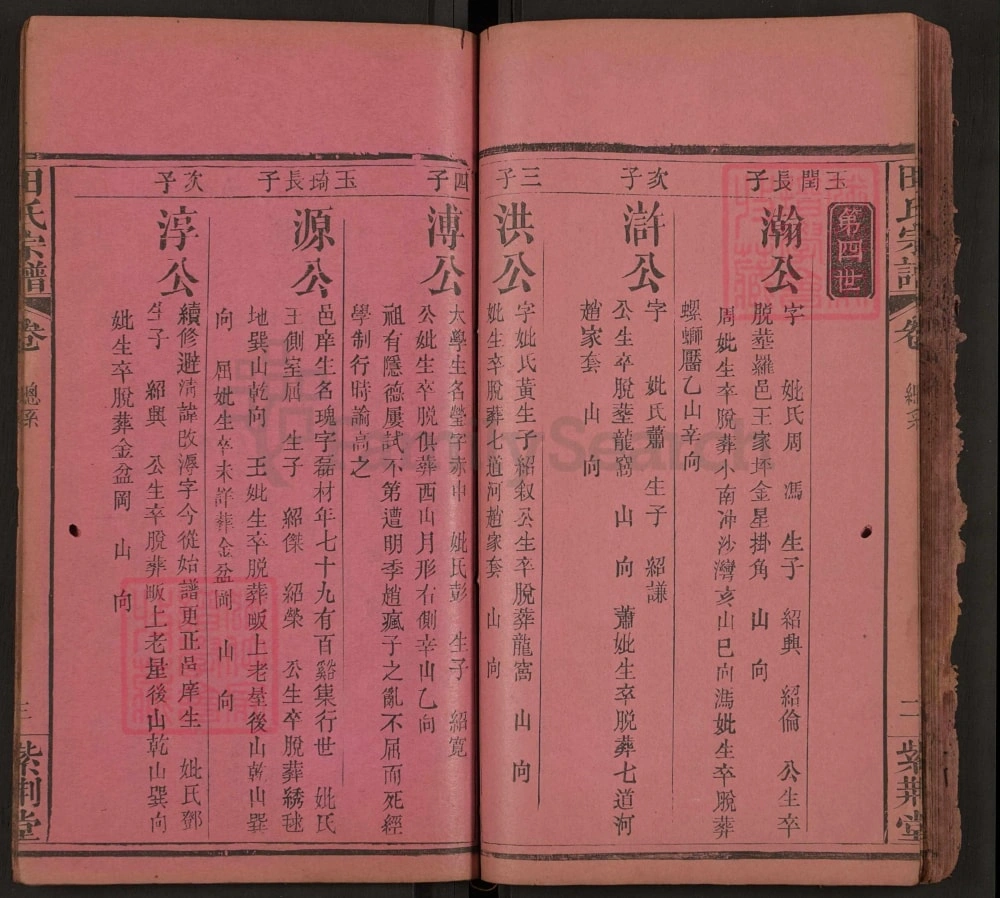 第四世
玉閏長子
瀚公
字　妣氏周　馮　生子　紹興　紹倫　公生卒
脫塟羅邑王家坪金星掛角　山　向
周妣生卒脫葬小南冲沙灣亥山巳向馮妣生卒脫葬
螺螄黶乙山辛向
次子
滸公
字　妣氏蕭　生子　紹謙
公生卒脫塟龍窩　山　向　蕭妣生卒脫葬七道河
趙家套　山　向
三子
洪公
字妣氏黃生子紹叙公生卒脫葬龍窩　山　向
妣生卒脫葬七道河趙家套　山　向
四子
溥公
太學生名瑩字赤中　妣氏彭　生子　紹寬
公妣生卒脫俱葬西山月形右側幸山乙向
祖有隱德屢試不第遭明季趙瘋子之亂不屈而死經
學制行時論高之
玉琦長子
源公
邑庠生名瑰字磊材年七十九有百谿集行世　妣氏
王側室屈　生子　紹傑　紹榮　公生卒脫葬綉毬
地巽山乾向　王妣生卒脫葬畈上老垦後山乾山巽
向　屈妣生卒未詳葬金盆岡　山　向
次子
淳公
續修避清諱改湻字今從始譜更正邑庠生　妣氏鄧
生子　紹興　公生卒脫葬畈上老垦後山乾山巽向
妣生卒脫葬金盆岡　山　向
田氏宗譜　卷　總系　二　紫荆堂
田氏宗譜　卷　總系　三　紫荆堂
FamilySearch